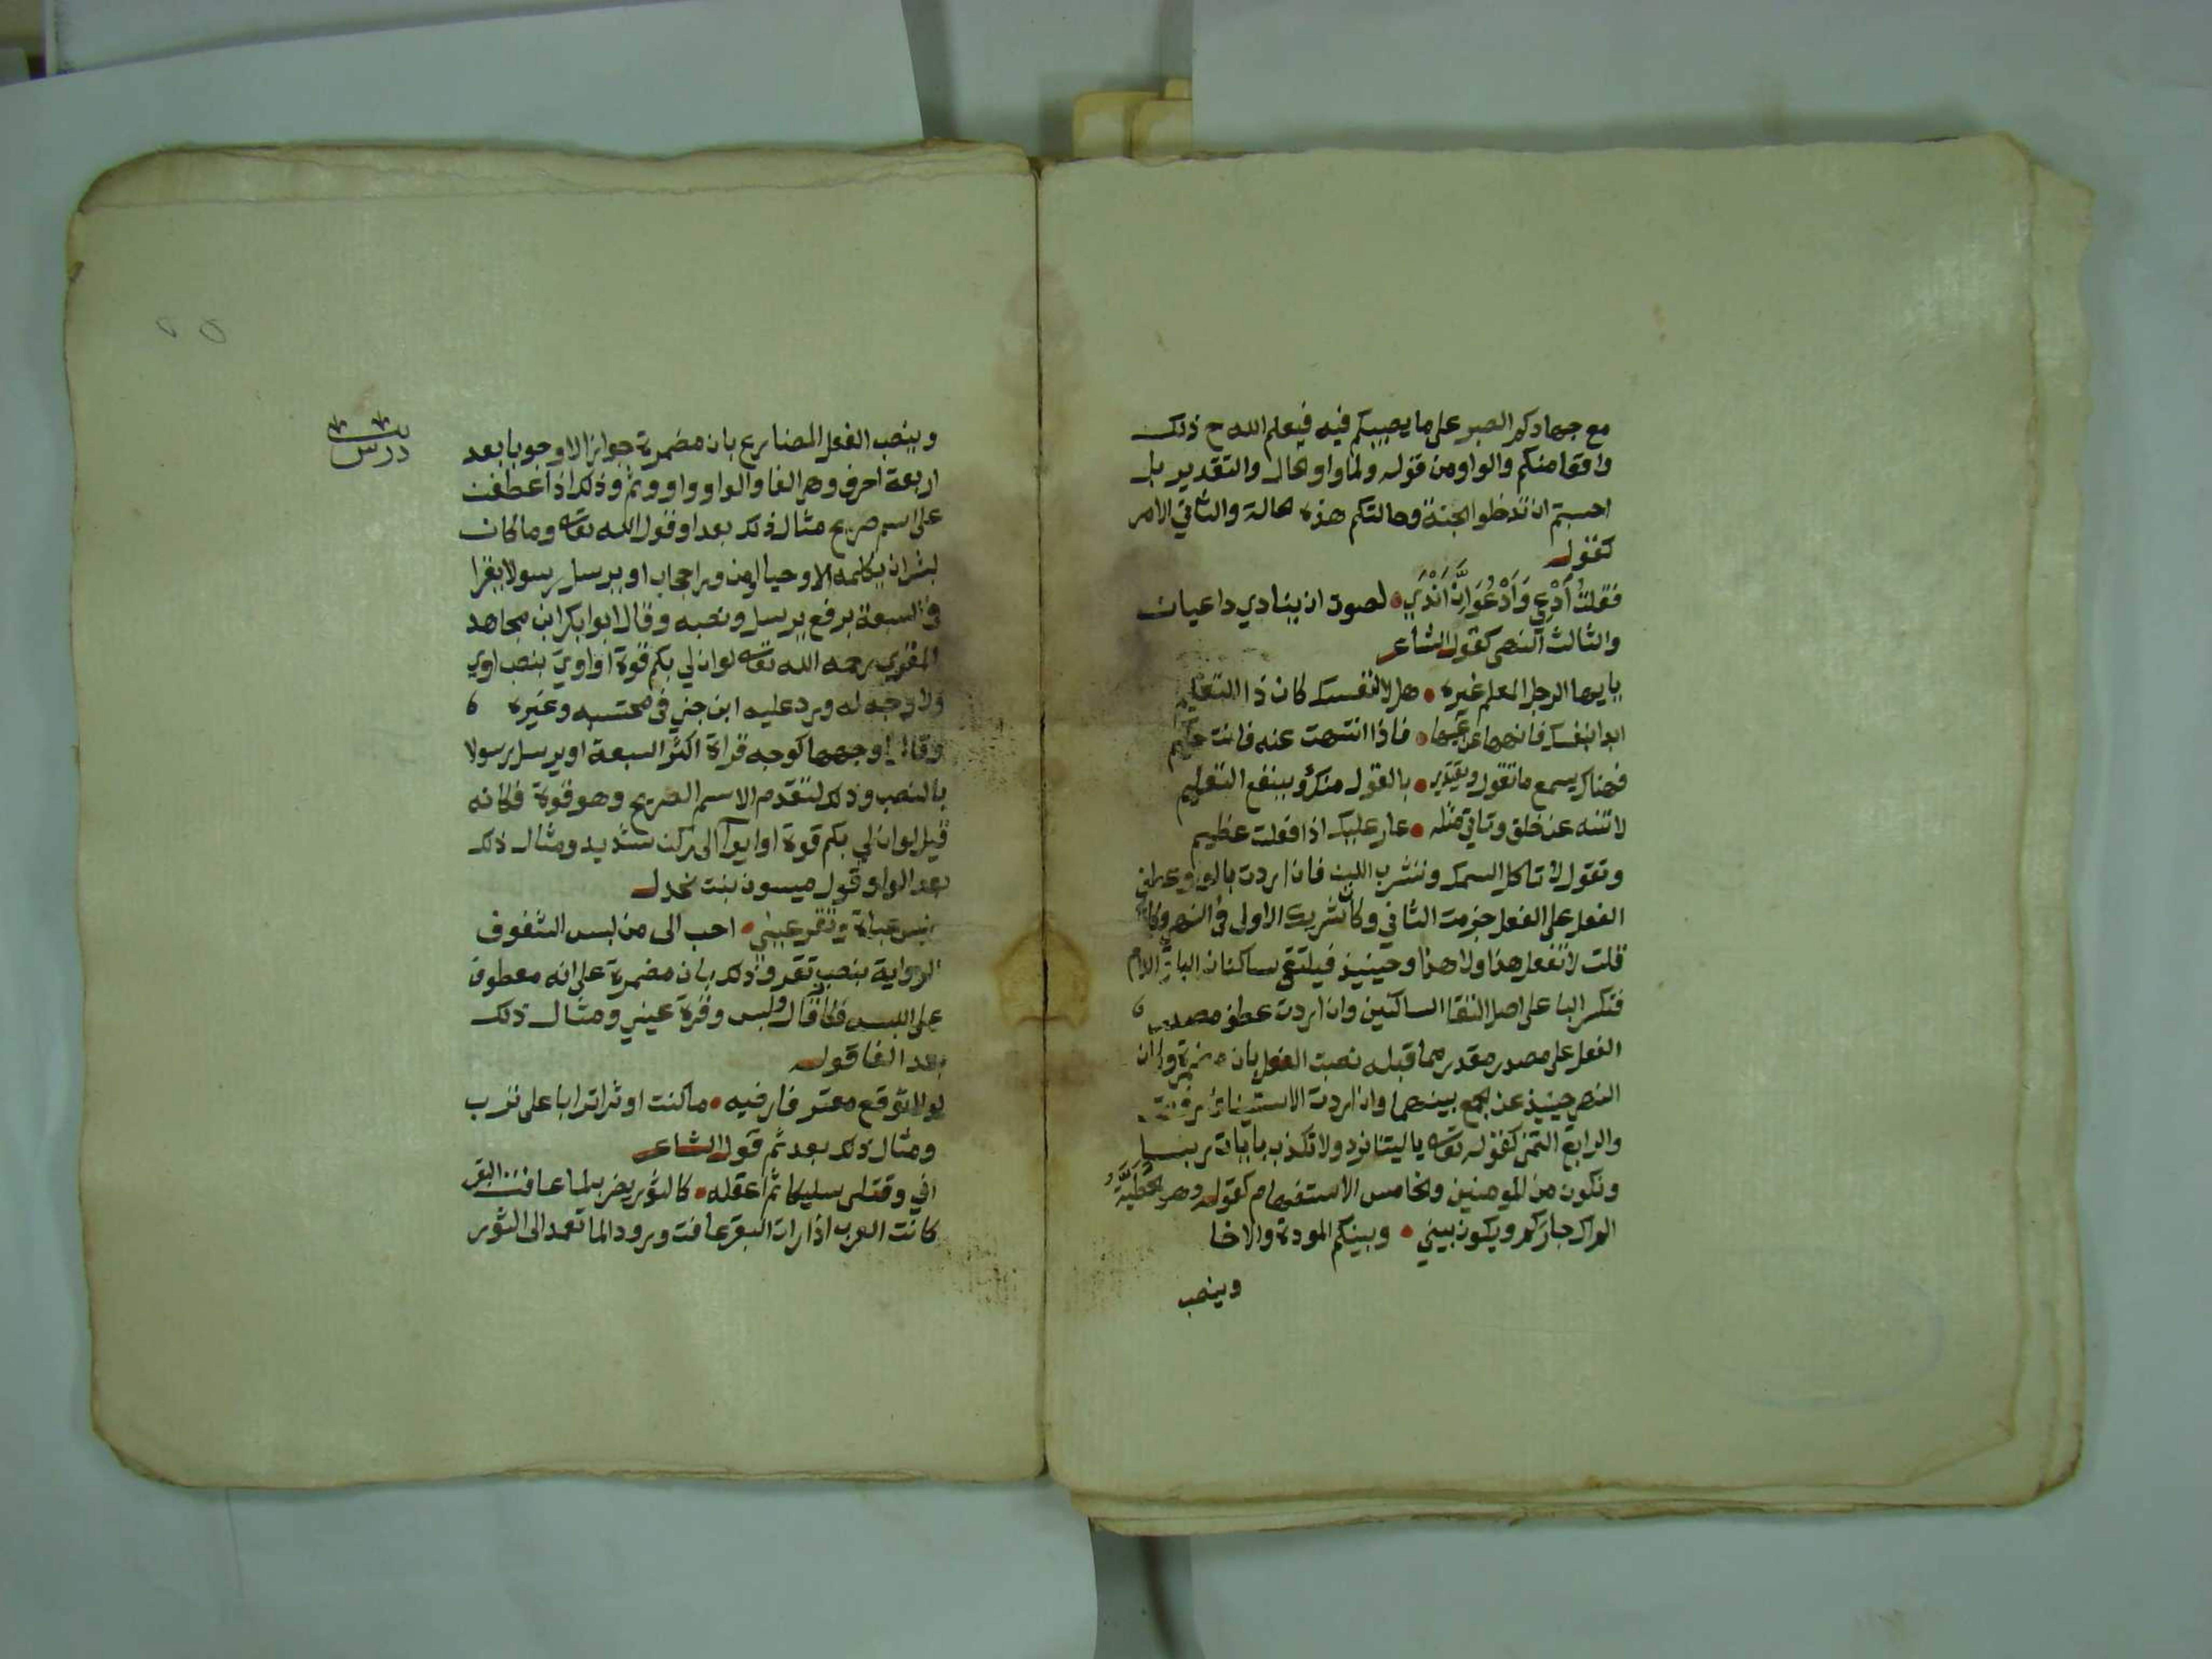 مع جهادكم الصبر على ما يصيبكم فيه فيعلم الله ح ذلك
واقعا منكم والواو من قوله ولما واو الحال والتقدير بل
احسبتم ان تدخلوا الجنة وحالتكم هذه الحالة والثاني الامر
كقوله
فَقلتُ أدْعِي وَأدْعُوَ اِنَّ أنْدَي لصوت ان ينادي داعيان
والثالث النهي كقول الشاعر
يا ايها الرجل المعلم غيره هلا لنفسك كان ذا التعليم
ابدا بنفسك فانهها عن غيها فاذا انتهت عنه فانت حكيم
فهناك يسمع ما تقول ويقتدي بالقول منك وينفع التعليم
لا تنه عن خلق وتاتي مثله عار عليك اذا فعلت عظيم
وتقول لا تاكل السمك وتشرب اللبن فان اردت بالواو عطف
الفعل على الفعل جزمت الثاني وكان شريك الاول في النهي وكانك
قلت لا تفعل هذا ولا هذا وحينيذ فيلتقي ساكنان البا واللام
فتكسر البا على اصل التقا الساكنين وان اردت عطف مصدر
الفعل على مصدر مقدر مما قبله نصبت الفعل بان مضمرة وكان
النهي حينيذ عن الجمع بينهما وان اردت الاستيناف رفعت
والرابع التمني كقوله تعالى يا ليتنا نرد ولا نكذب بايات ربنا
ونكون من المومنين والخامس الاستفهام كقوله وهو الحُطَيْئَة
الم اك جاركم ويكون بيني وبينكم المودة والاخا
وينصب
وينصب الفعل المضارع بان مضمرة جوازا لا وجوبا بعد
اربعة احرف وهي الفا والواو واو وثم وذلك اذا عطفت
على اسم صريح مثال ذلك بعد او قول الله تعالى وما كان
لبشر ان يكلمه الله الا وحيا او من ورا حجاب او يرسل رسولا يقرا
في السبعة برفع يرسل ونصبه وقال ابو ابكر ابن مجاهد
المقري رحمه الله تعالى لو ان لي بكم قوة او اوي بنصب اوي
ولا وجه له ورد عليه ابن جني في محتسبه وغيره
وقال وجهها كوجه قراة اكثر السبعة او يرسل رسولا
بالنصب وذلك لتقدم الاسم الصريح وهو قوة فكانه
قيل لو ان لي بكم قوة او ايوآ الى ركن شديد ومثال ذلك
بعد الواو قول ميسون بنت بحدل
لبس عباة وتقر عيني احب الى من لبس الشفوف
الرواية بنصب تقر وذلك بان مضمرة على انه معطوف
على اللبس فكانه قال ولبس وقرة عيني ومثال ذلك
بعد الفا قوله
لولا توقع معتر فارضيه ما كنت اوثر اترابا على ترب
ومثال ذلك بعد ثم قول الشاعر
اني وقتلي سليكا ثم اعقله كالثور يضرب لما عافت البقر
كانت العرب اذا رات البقر عافت ورود الما تعمد الى الثور
درس